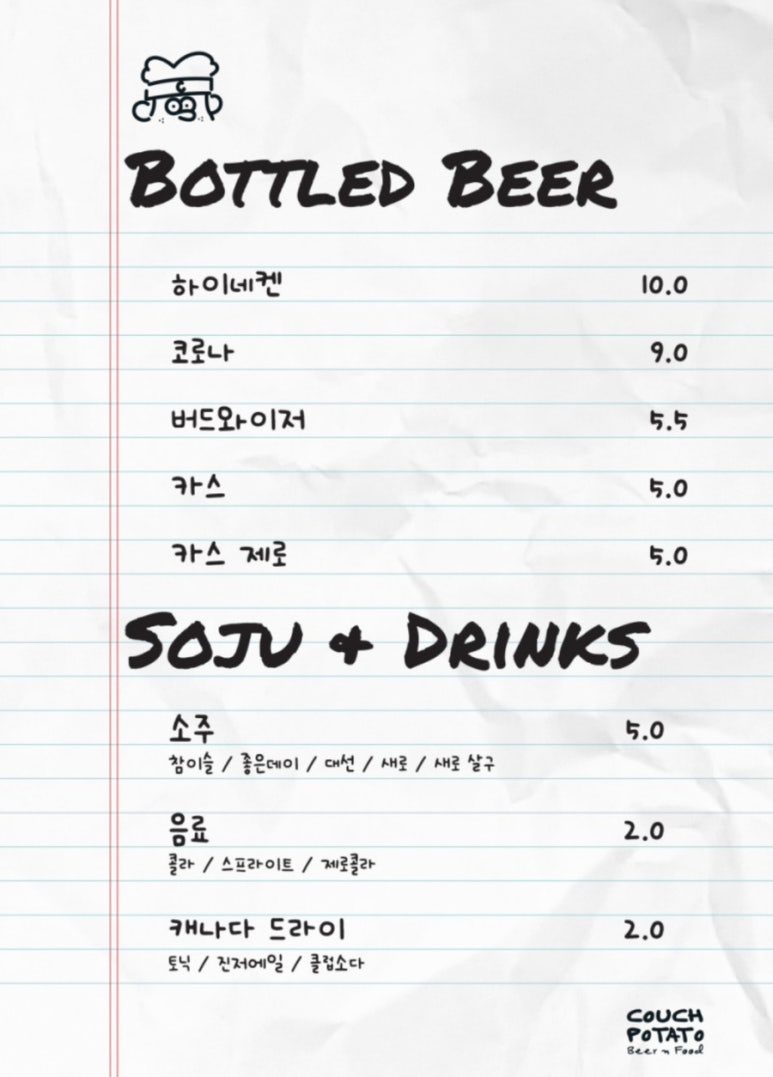 BOTTLED BEER
하이네켄 10.0
코로나 9.0
버드와이저 5.5
카스 5.0
카스 제로 5.0
SOJU & DRINKS
소주 5.0
참이슬 / 좋은데이 / 대선 / 새로 / 새로 살구
음료 2.0
콜라 / 스프라이트 / 제로콜라
캐나다 드라이 2.0
토닉 / 진저에일 / 클럽소다
COUCH
POTATO
Beer n Food